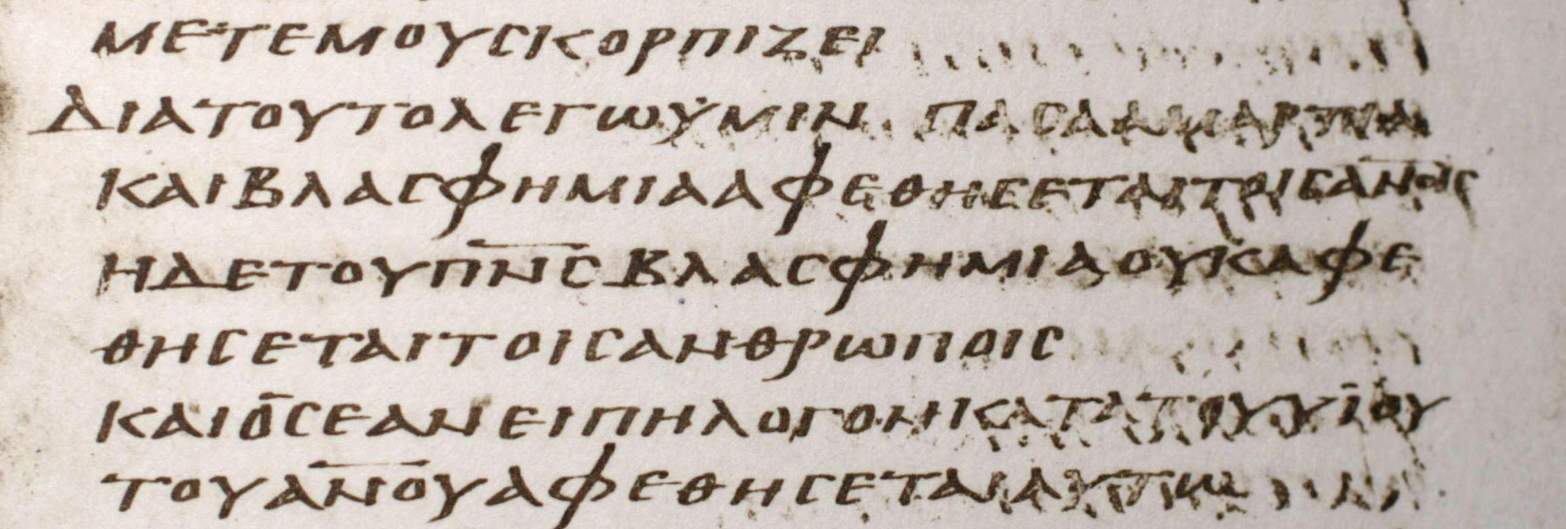 ΜΕΤΕΜΟΥСΚΟΡΠΙΖΕΙ
ΔΙΑΤΟΥΤΟΛΕΓΩΫΜΙΝ ΠΑСΑΑΜΑΡΤΙΑ
ΚΑΙΒΛΑСΦΗΜΙΑΑΦΕΘΗСΕΤΑΙΤΟΙСΑ̅Ν̅Ο̅Ι̅С
ΗΔΕΤΟΥΠ̅Ν̅СΒΛΑСΦΗΜΙΑΟΥΚΑΦΕ
ΘΗСΕΤΑΙΤΟΙСΑΝΘΡΩΠΟΙС
ΚΑΙΟ̄СΕΑΝΕΙΠΗΛΟΓΟΝΚΑΤΑΤΟΥΥΪΟΥ
ΤΟΥΑ̅Ν̅Ο̅ΥΑΦΕΘΗСΕΤΑΙΑΥΤΩ